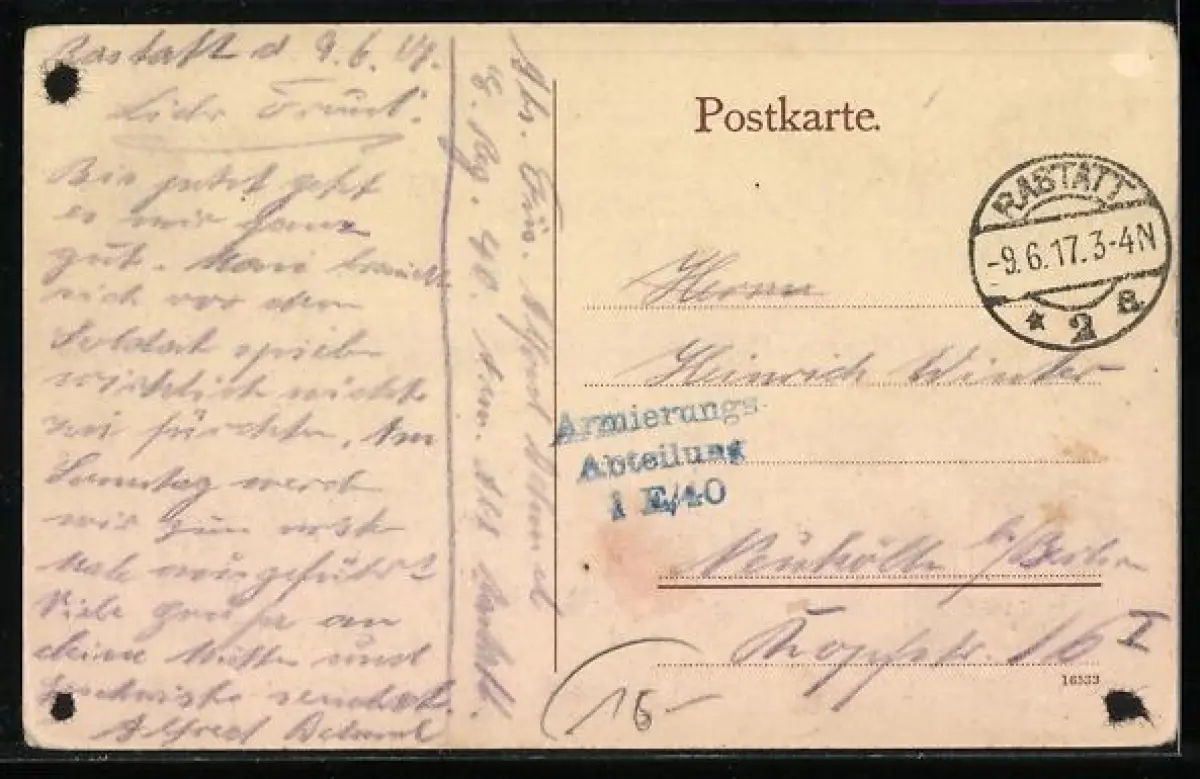 Rastatt d 9.6.17.
Liebr Freund!
Bis jetzt geht
es mir ganz
gut. Man braucht
sich vor dem
Soldat spielen
wirklich nichts
zu fürchten. Am
Sonntag werd
wir zum erst
Mal ausgeführt
Viele grüße an
deine Mutter und
Geschwister sendet
Alfred
Abs. Alfred
Postkarte.
RASTATT
-9.6.17.3-4N
* 2 a
Herrn
Heinrich Winter
Armierungs
Abteilung
1 E/40
Neukölln b/Berlin
Kopfstr. 16 I
16533
16-